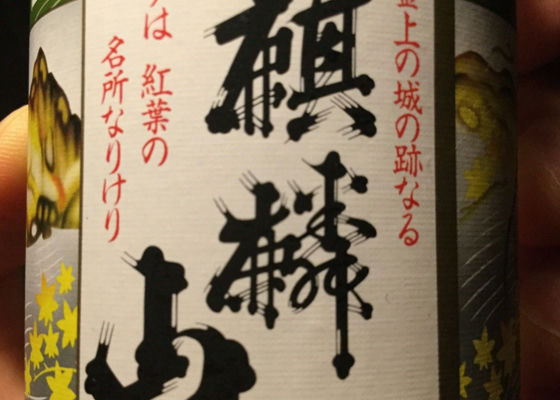 金上の城の跡なる
麒麟
山
は 紅葉の
名所なりけり